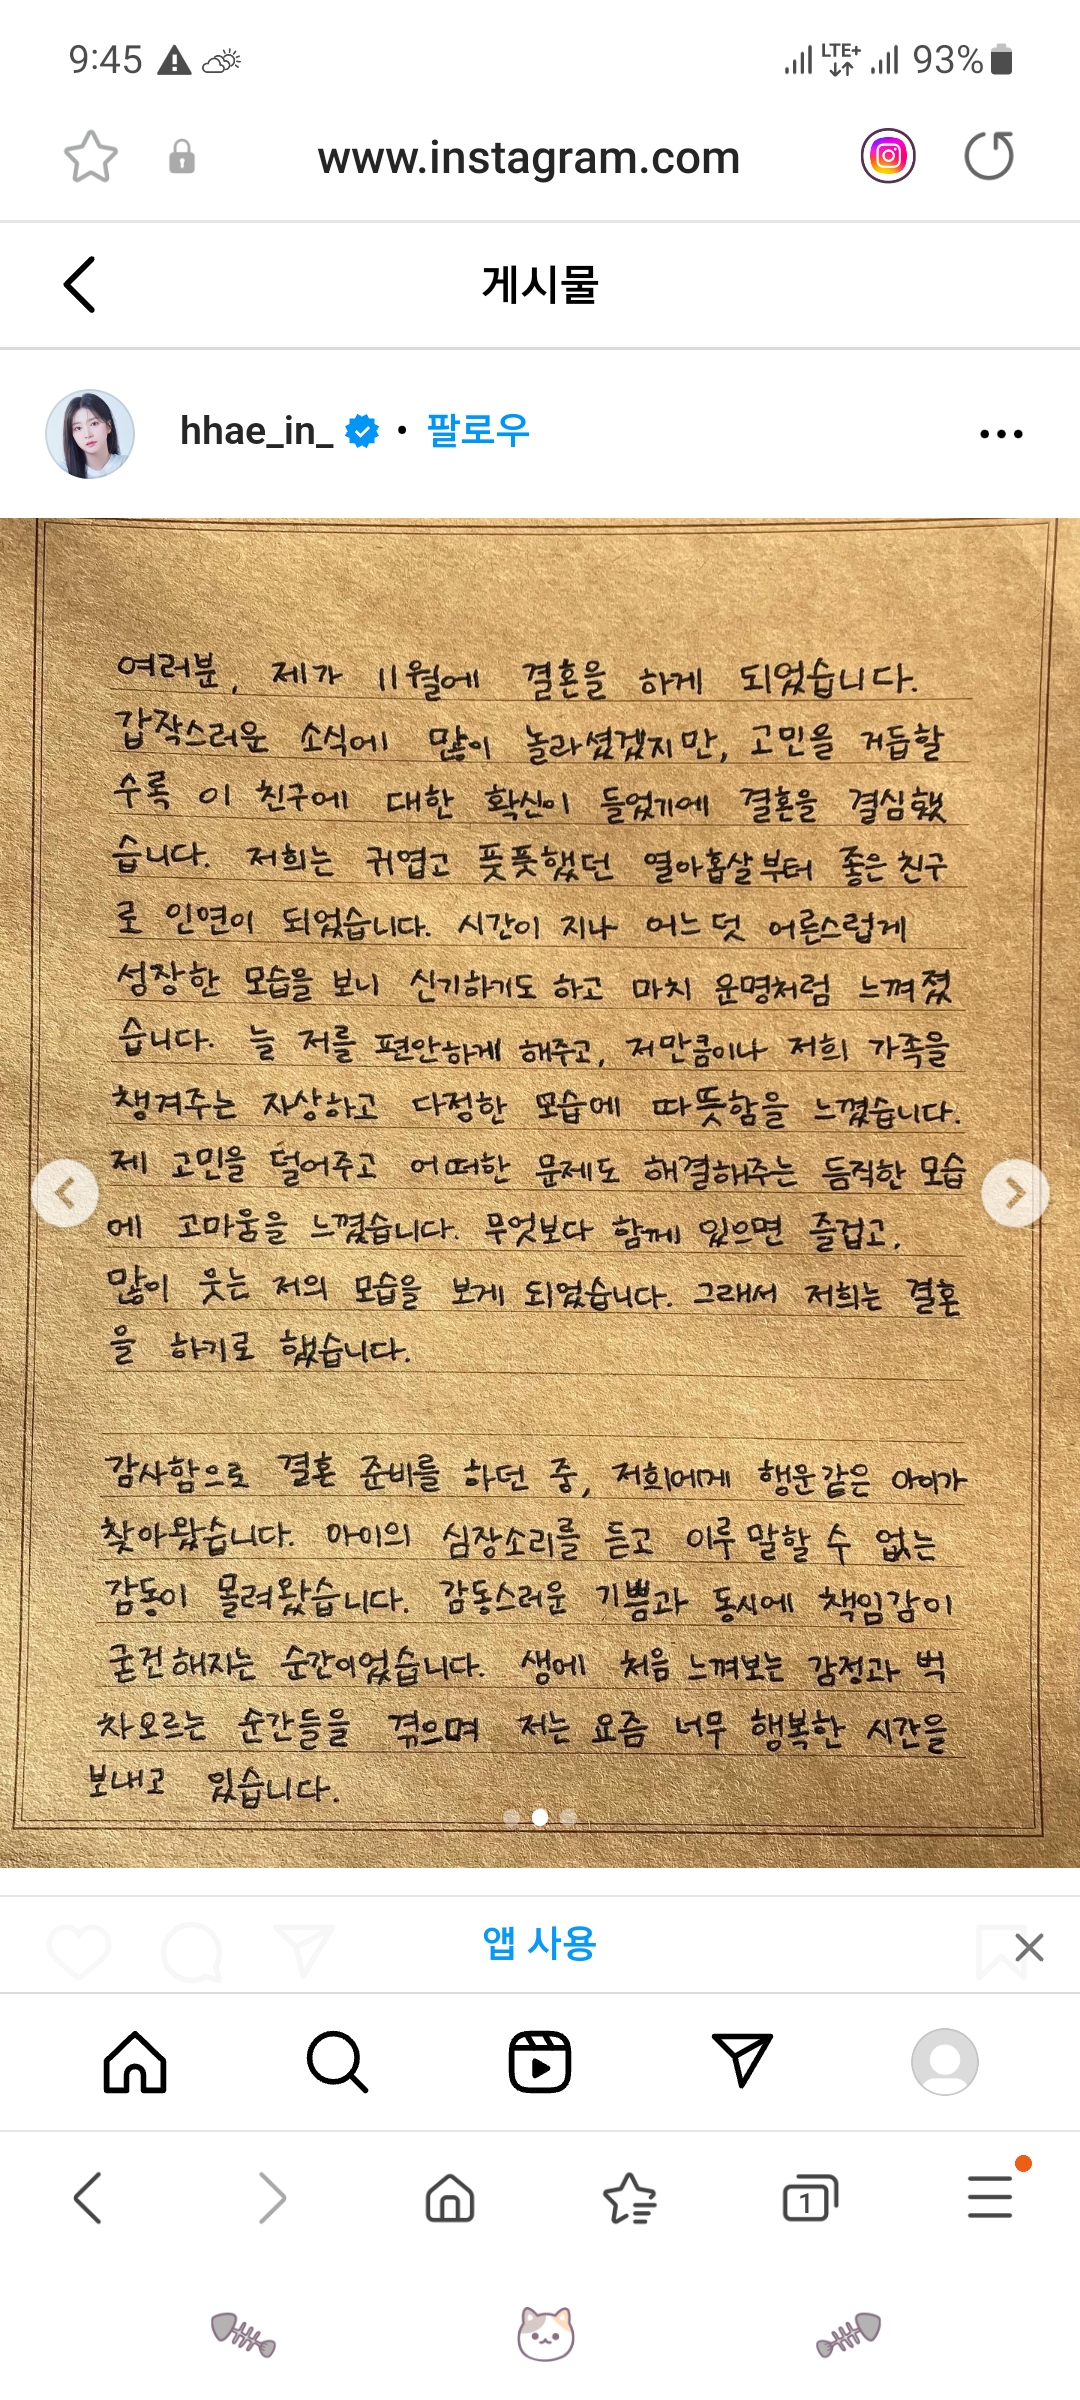 9:45 LTE+ 93%
www.instagram.com
게시물
hhae_in_ • 팔로우
여러분, 제가 11월에 결혼을 하게 되었습니다.
갑작스러운 소식에 많이 놀라셨겠지만, 고민을 거듭할
수록 이 친구에 대한 확신이 들었기에 결혼을 결심했
습니다. 저희는 귀엽고 풋풋했던 열아홉살부터 좋은 친구
로 인연이 되었습니다. 시간이 지나 어느덧 어른스럽게
성장한 모습을 보니 신기하기도 하고 마치 운명처럼 느껴졌
습니다. 늘 저를 편안하게 해주고, 저만큼이나 저희 가족을
챙겨주는 자상하고 다정한 모습에 따뜻함을 느꼈습니다.
제 고민을 덜어주고 어떠한 문제도 해결해주는 듬직한 모습
에 고마움을 느꼈습니다. 무엇보다 함께 있으면 즐겁고,
많이 웃는 저의 모습을 보게 되었습니다. 그래서 저희는 결혼
을 하기로 했습니다.
감사함으로 결혼 준비를 하던 중, 저희에게 행운같은 아이가
찾아왔습니다. 아이의 심장소리를 듣고 이루 말할 수 없는
감동이 몰려왔습니다. 감동스러운 기쁨과 동시에 책임감이
굳건해지는 순간이었습니다. 생에 처음 느껴보는 감정과 벅
차오르는 순간들을 겪으며 저는 요즘 너무 행복한 시간을
보내고 있습니다.
앱 사용
1